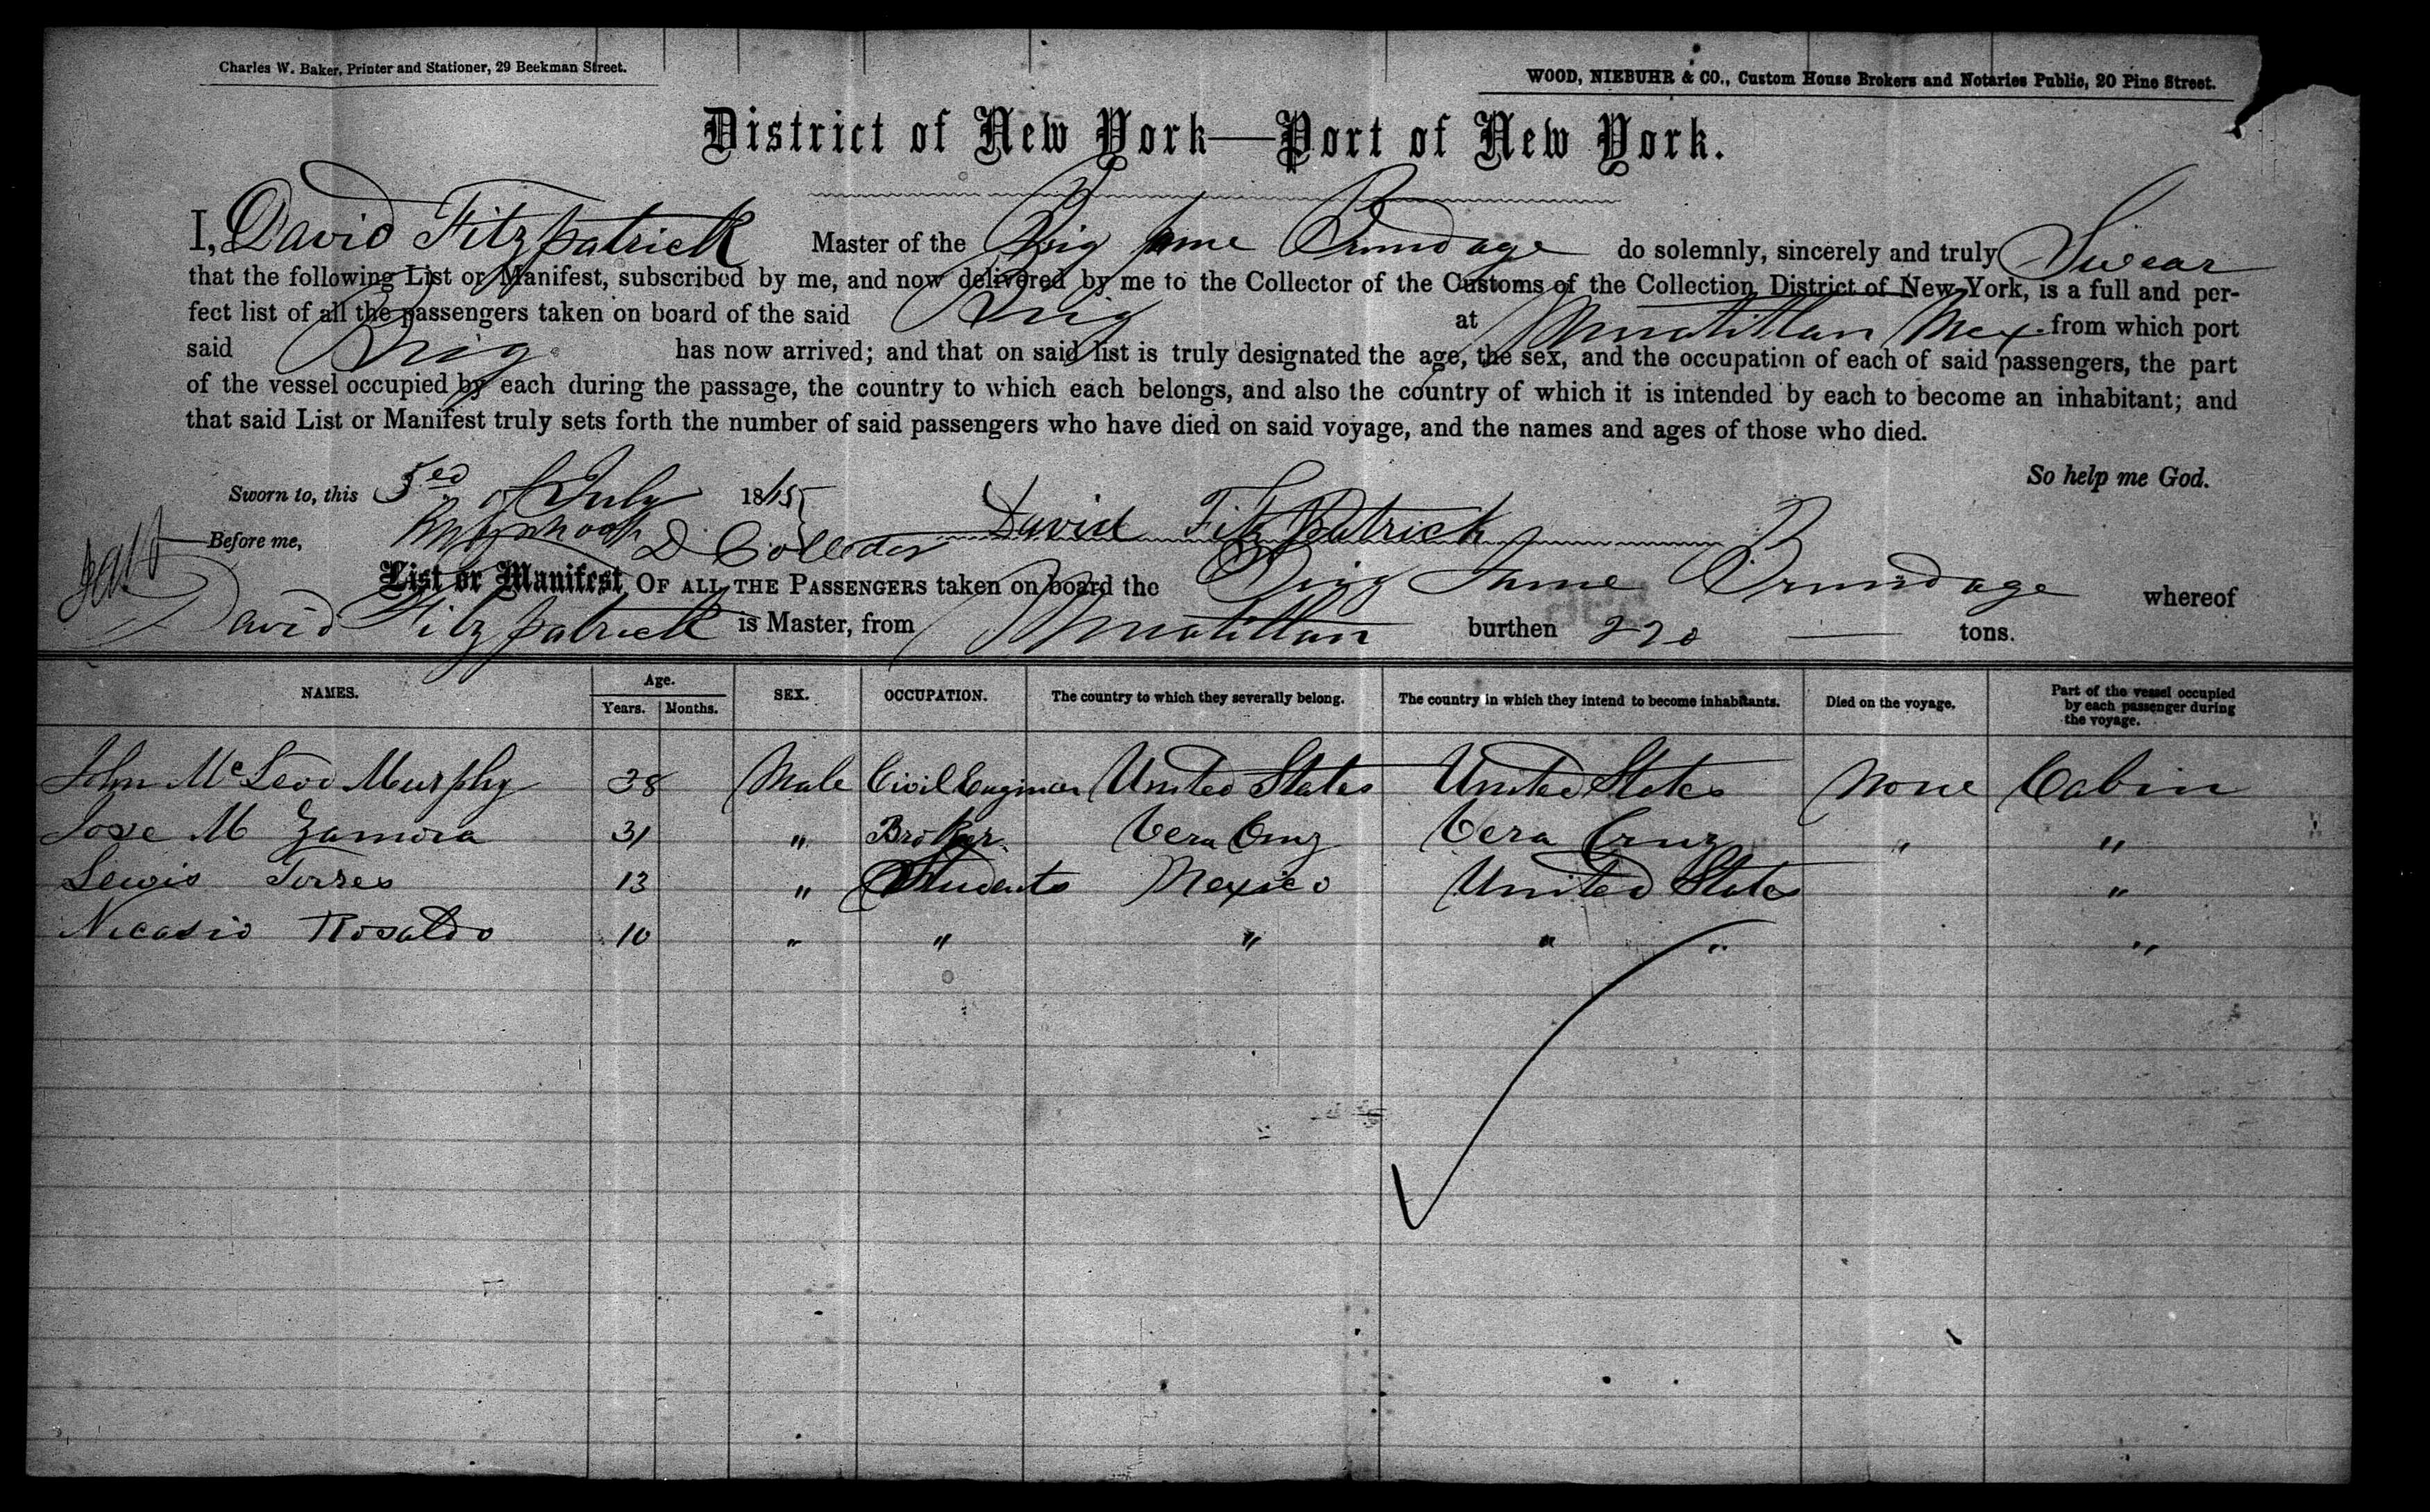 Charles W. Baker, Printer and Stationer, 29 Beekman Street.
WOOD, NIEBUHR & CO., Custom House Brokers and Notaries Public, 20 Pine Street.
District of New York—Port of New York.
I, David Fitzpatrick Master of the Brig Jane Brundage do solemnly, sincerely and truly Swear
that the following List or Manifest, subscribed by me, and now delivered by me to the Collector of the Customs of the Collection District of New York, is a full and per-
fect list of all the passengers taken on board of the said Brig at Minatitlan Mex. from which port
said Brig has now arrived; and that on said list is truly designated the age, the sex, and the occupation of each of said passengers, the part
of the vessel occupied by each during the passage, the country to which each belongs, and also the country of which it is intended by each to become an inhabitant; and
that said List or Manifest truly sets forth the number of said passengers who have died on said voyage, and the names and ages of those who died.
So help me God.
Sworn to, this of July 1865
Before me, D. Collector David Fitzpatrick
List or Manifest OF ALL THE PASSENGERS taken on board the Brig Jane Brundage whereof
David Fitzpatrick is Master, from Minatitlan burthen 220 tons.
NAMES. Age. Years. Months. SEX. OCCUPATION. The country to which they severally belong. The country in which they intend to become inhabitants. Died on the voyage. Part of the vessel occupied by each passenger during the voyage.
John Mc Leod Murphy 38 Male Civil Engineer United States United States None Cabin
Jose M Zamora 31 " Broker Vera Cruz Vera Cruz " "
Lewis Torres 13 " Students Mexico United States "
Nicasio Rosaldo 10 " " " " " "